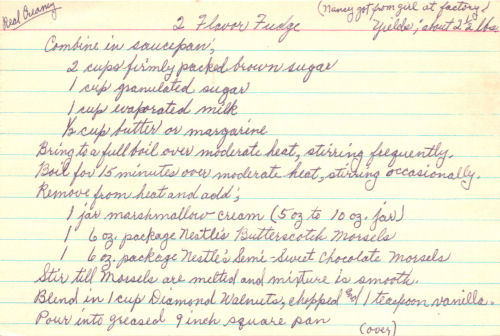 Real Creamy
(Nancy got from girl at factory)
2 Flavor Fudge
Yields; about 2½ lbs.
Combine in saucepan;
2 cups firmly packed brown sugar
1 cup granulated sugar
1 cup evaporated milk
½ cup butter or margarine
Bring to a full boil over moderate heat, stirring frequently.
Boil for 15 minutes over moderate heat, stirring occasionally.
Remove from heat and add;
1 jar marshmallow cream (5 oz to 10 oz. jar)
1 6 oz. package Nestle's Butterscotch Morsels
1 6 oz. package Nestle's Semi-Sweet Chocolate Morsels
Stir till Morsels are melted and mixture is smooth.
Blend in 1 cup Diamond Walnuts, chopped and 1 teaspoon vanilla.
Pour into greased 9 inch square pan
(over)